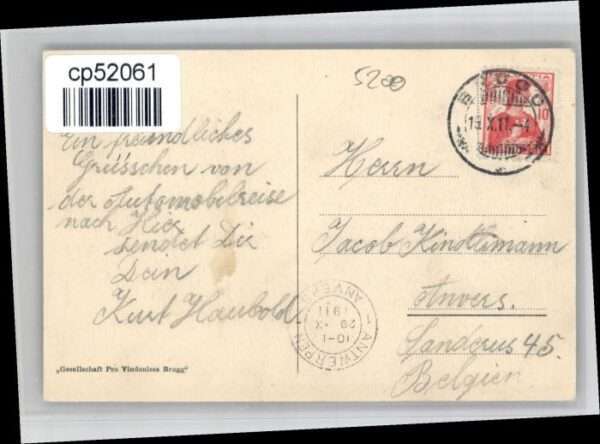 cp52061
5200
BRUGG
19.X.11.-4
10
Ein freundliches
Grüsschen von
der Automobilreise
nach Hier
sendet Dir
Dein
Kurt Haubold
Herrn
Jacob Kindlimann
Anvers.
Sanderus 45.
Belgien
ANTWERPEN
10-1
29 X
1911
ANVERS
„Gesellschaft Pro Vindonissa Brugg"